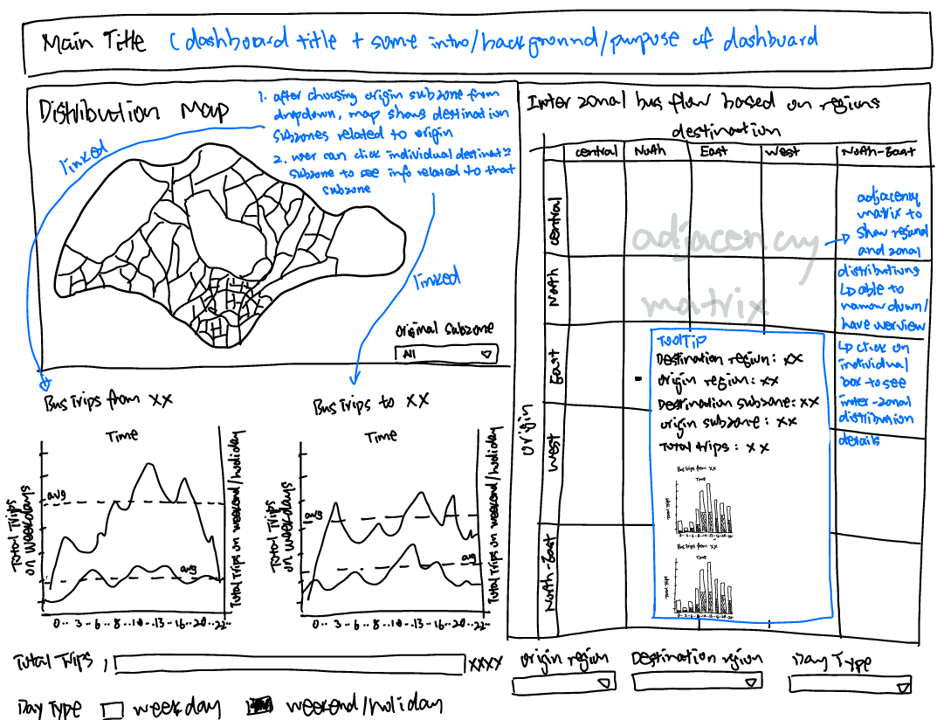 Main Title (dashboard title + some intro/background/purpose of dashboard
Distribution Map
1. after choosing origin subzone from
dropdown, map shows destination
subzones related to origin
2. user can click individual destinat°
subzone to see info related to that
subzone
linked
linked
original subzone
All
Bus Trips from XX
Time
Total Trips
on weekdays
avg
avg
Total Trips on weekend/holiday
0.. 3 - 6 - 8 - 10 - 13 - 16 - 20 .. 22
Bus Trips to XX
Time
Total Trips
on weekdays
avg
avg
Total Trips on weekend/holiday
0.. 3 - 6 - 8 - 10 - 13 - 16 - 20 .. 22
Total Trips, XXXX
Day Type weekday weekend/holiday
Inter zonal bus flow based on regions
destination
central North East West North-East
origin
central
North
East
West
North-East
adjacency
matrix
adjacency
matrix to
show regional
and zonal
distributions
↳ able to
narrow down/
have overview
↳ click on
individual
box to see
inter-zonal
distribution
details
ToolTip
Destination region: XX
origin region: XX
Destination subzone: XX
origin subzone: XX
Total trips: XX
Bus Trips from XX
Time
Total Trips
Bus Trips from XX
Time
Total Trips
origin region
Destination region
Day Type